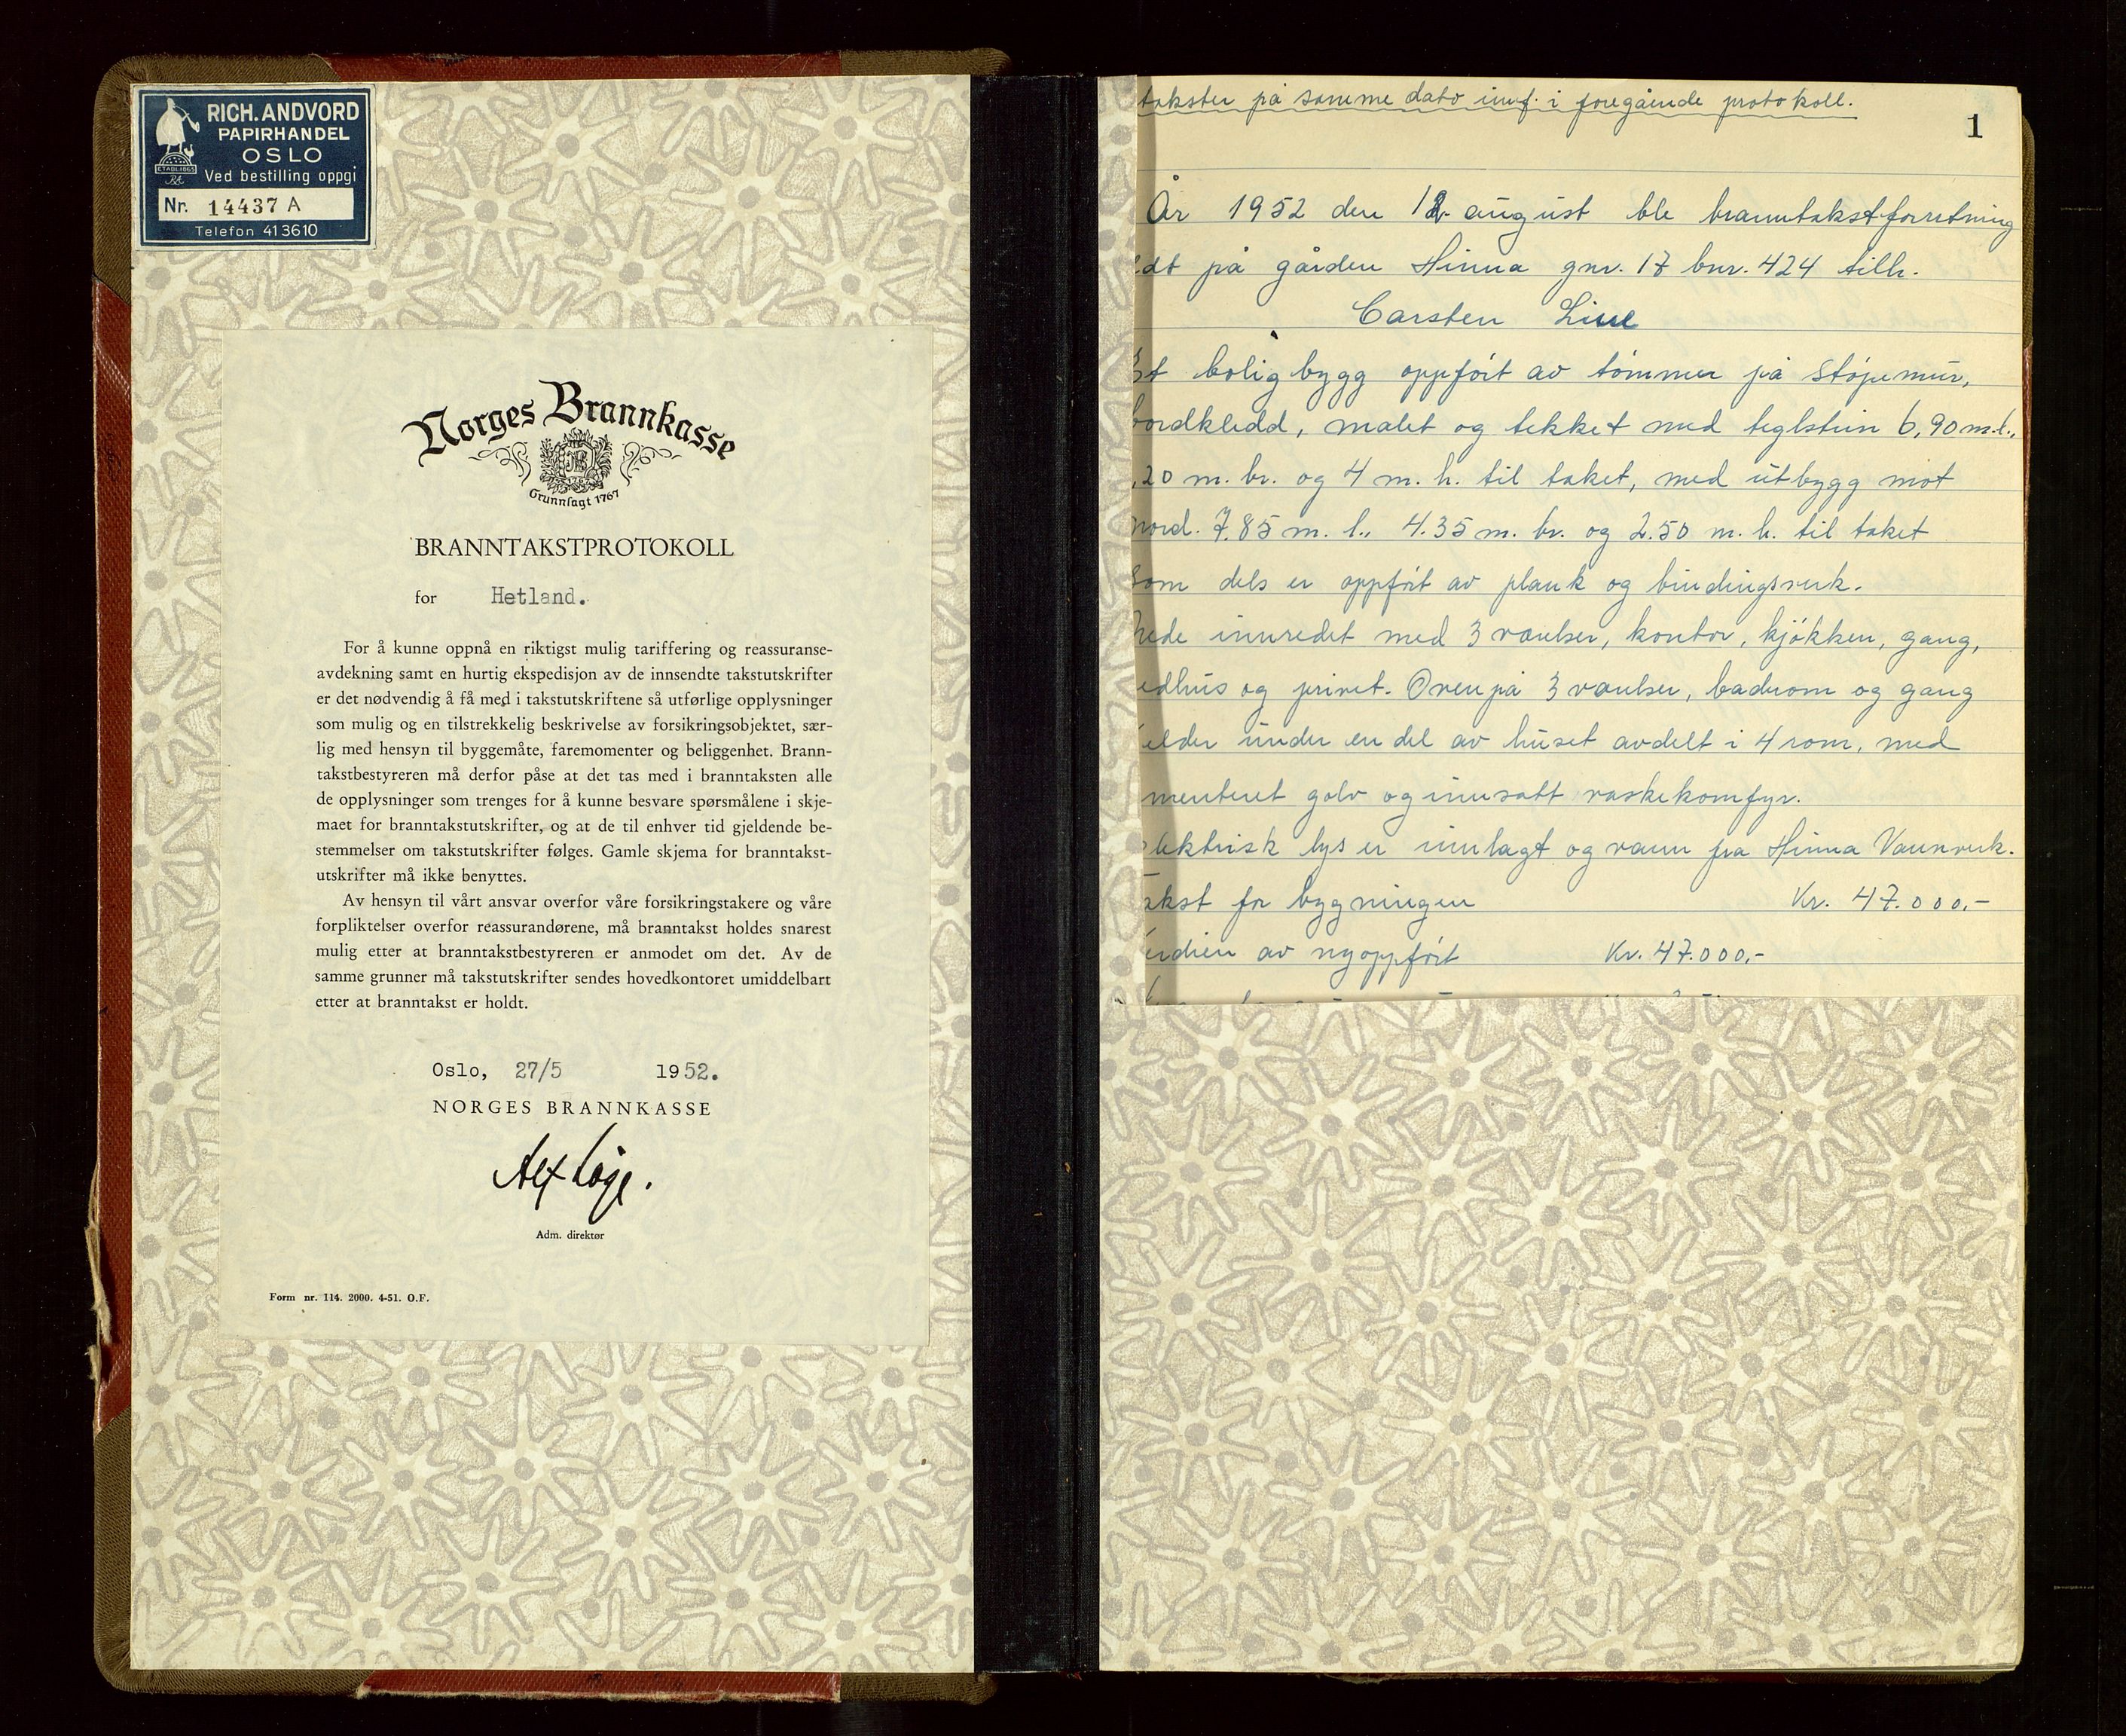 RICH. ANDVORD
PAPIRHANDEL
OSLO
ETABL. 1865
Ved bestilling oppgi
Nr. 14437 A
Telefon 413610
Norges Brannkasse
Grunnlagt 1767
BRANNTAKSTPROTOKOLL
for Hetland.
For å kunne oppnå en riktigst mulig tariffering og reassuranse-
avdekning samt en hurtig ekspedisjon av de innsendte takstutskrifter
er det nødvendig å få med i takstutskriftene så utførlige opplysninger
som mulig og en tilstrekkelig beskrivelse av forsikringsobjektet, sær-
lig med hensyn til byggemåte, faremomenter og beliggenhet. Brann-
takstbestyreren må derfor påse at det tas med i branntaksten alle
de opplysninger som trenges for å kunne besvare spørsmålene i skje-
maet for branntakstutskrifter, og at de til enhver tid gjeldende be-
stemmelser om takstutskrifter følges. Gamle skjema for branntakst-
utskrifter må ikke benyttes.
Av hensyn til vårt ansvar overfor våre forsikringstakere og våre
forpliktelser overfor reassurandørene, må branntakst holdes snarest
mulig etter at branntakstbestyreren er anmodet om det. Av de
samme grunner må takstutskrifter sendes hovedkontoret umiddelbart
etter at branntakst er holdt.
Oslo, 27/5 1952.
NORGES BRANNKASSE
Adm. direktør
Form nr. 114. 2000. 4-51. O.F.
takster på samme dato innf. i foregående protokoll.
1
År 1952 den 12. august ble branntakstforretning
på gården Hinna gnr. 17 bnr. 424 tilh.
Carsten
bolig bygg oppført av tømmer på støpemur,
bordkledd, malet og tekket med teglstein 6,90 m.l.,
,20 m. br. og 4 m. h. til taket, med utbygg mot
nord. 7.85 m. l., 4.35 m. br. og 2.50 m. h. til taket
som dels er oppført av plank og bindingsverk.
Nede innredet med 3 værelser, kontor, kjøkken, gang,
edhus og privet. Oven på 3 værelser, baderom og gang
elder under en del av huset avdelt i 4 rom, med
menteret golv og innsatt vaskekomfyr.
elektrisk lys er innlagt og vann fra Hinna Vannverk.
akst for bygningen Kr. 47.000,-
erdien av nyoppført Kr. 47.000,-